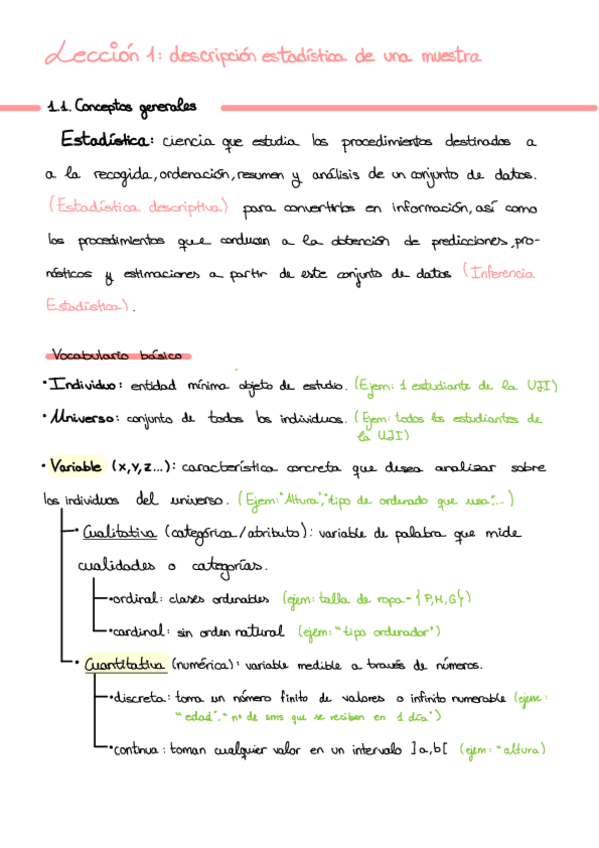 Lección 1: descripción estadística de una muestra
1.1. Conceptos generales
Estadística: ciencia que estudia los procedimientos destinados a
a la recogida, ordenación, resumen y análisis de un conjunto de datos.
(Estadística descriptiva) para convertirlos en información, así como
los procedimientos que conducen a la obtención de predicciones, pro-
nósticos y estimaciones a partir de este conjunto de datos (Inferencia
Estadística).
Vocabulario básico
• Individuo: entidad mínima objeto de estudio. (Ejem: 1 estudiante de la UJI)
• Universo: conjunto de todos los individuos. (Ejem: todos los estudiantes de
la UJI)
• Variable (x, y, z...): característica concreta que desea analizar sobre
los individuos del universo. (Ejem: "Altura", "tipo de ordenado que usa", ...)
• Cualitativa (categórica / atributo): variable de palabra que mide
cualidades o categorías.
• ordinal: clases ordenables (ejem: talla de ropa - {P, M, G})
• cardinal: sin orden natural (ejem: "tipo ordenador")
• Cuantitativa (numérica): variable medible a través de números.
• discreta: toma un número finito de valores o infinito numerable (ejem:
"edad", "nº de sms que se reciben en 1 día")
• continua: toman cualquier valor en un intervalo ]a,b[ (ejem: "altura)